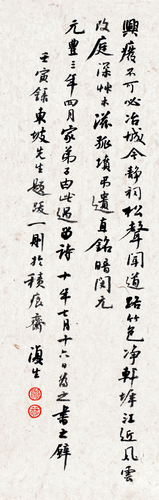 興廢不可必冶城今靜祠松聲聞道路竹色淨軒墀江近風雲
改庭深草木滋孤墳弔遺直銘暗閟元
元豐三年四月家弟子由此過留詩十年七月十六日為之書之壁
壬寅錄東坡先生題跋一則於積微齋 滇生